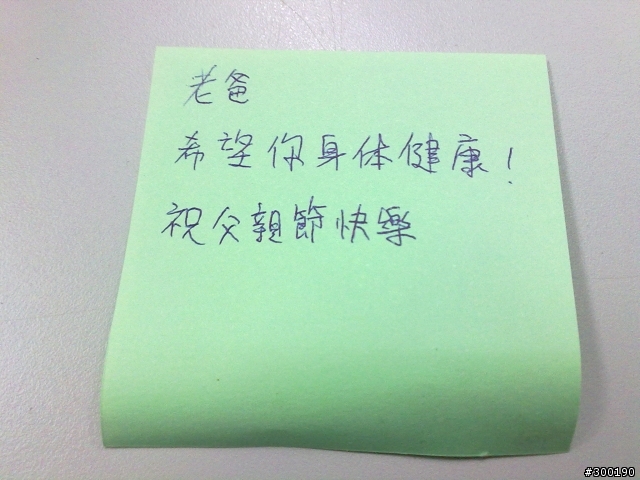 老爸
希望你身体健康！
祝父親節快樂
#300190